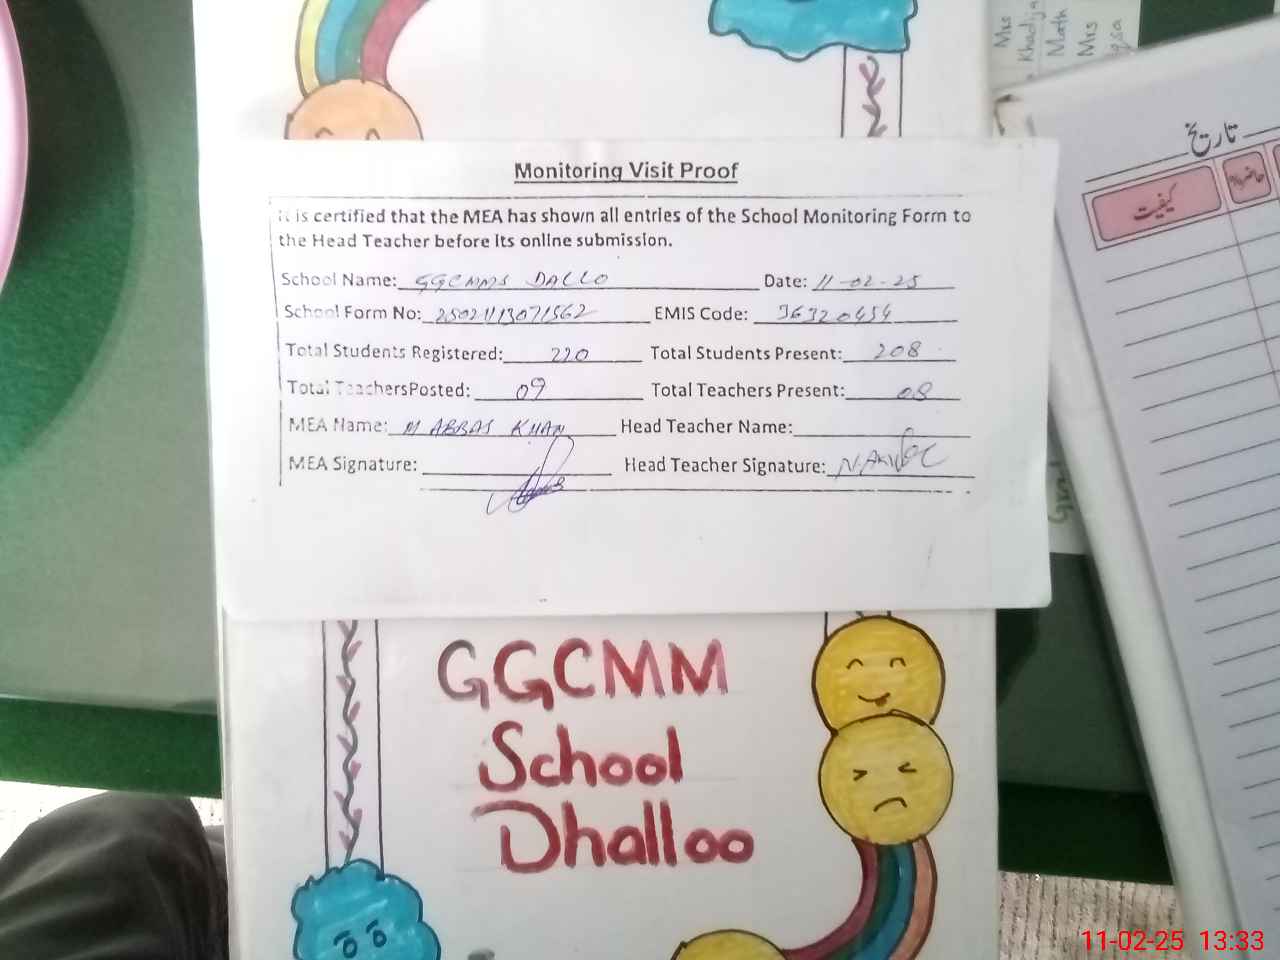 Mrs
Khadija
Math
Mrs
تاریخ
کیفیت
Monitoring Visit Proof
It is certified that the MEA has shown all entries of the School Monitoring Form to
the Head Teacher before its online submission.
School Name: GGCMMS DALLO Date: 11-02-25
School Form No: 25021113071562 EMIS Code: 36320454
Total Students Registered: 220 Total Students Present: 208
Total TeachersPosted: 09 Total Teachers Present: 08
MEA Name: M ABBAS KHAN Head Teacher Name:
MEA Signature: Head Teacher Signature:
GGCMM
School
Dhalloo
11-02-25 13:33